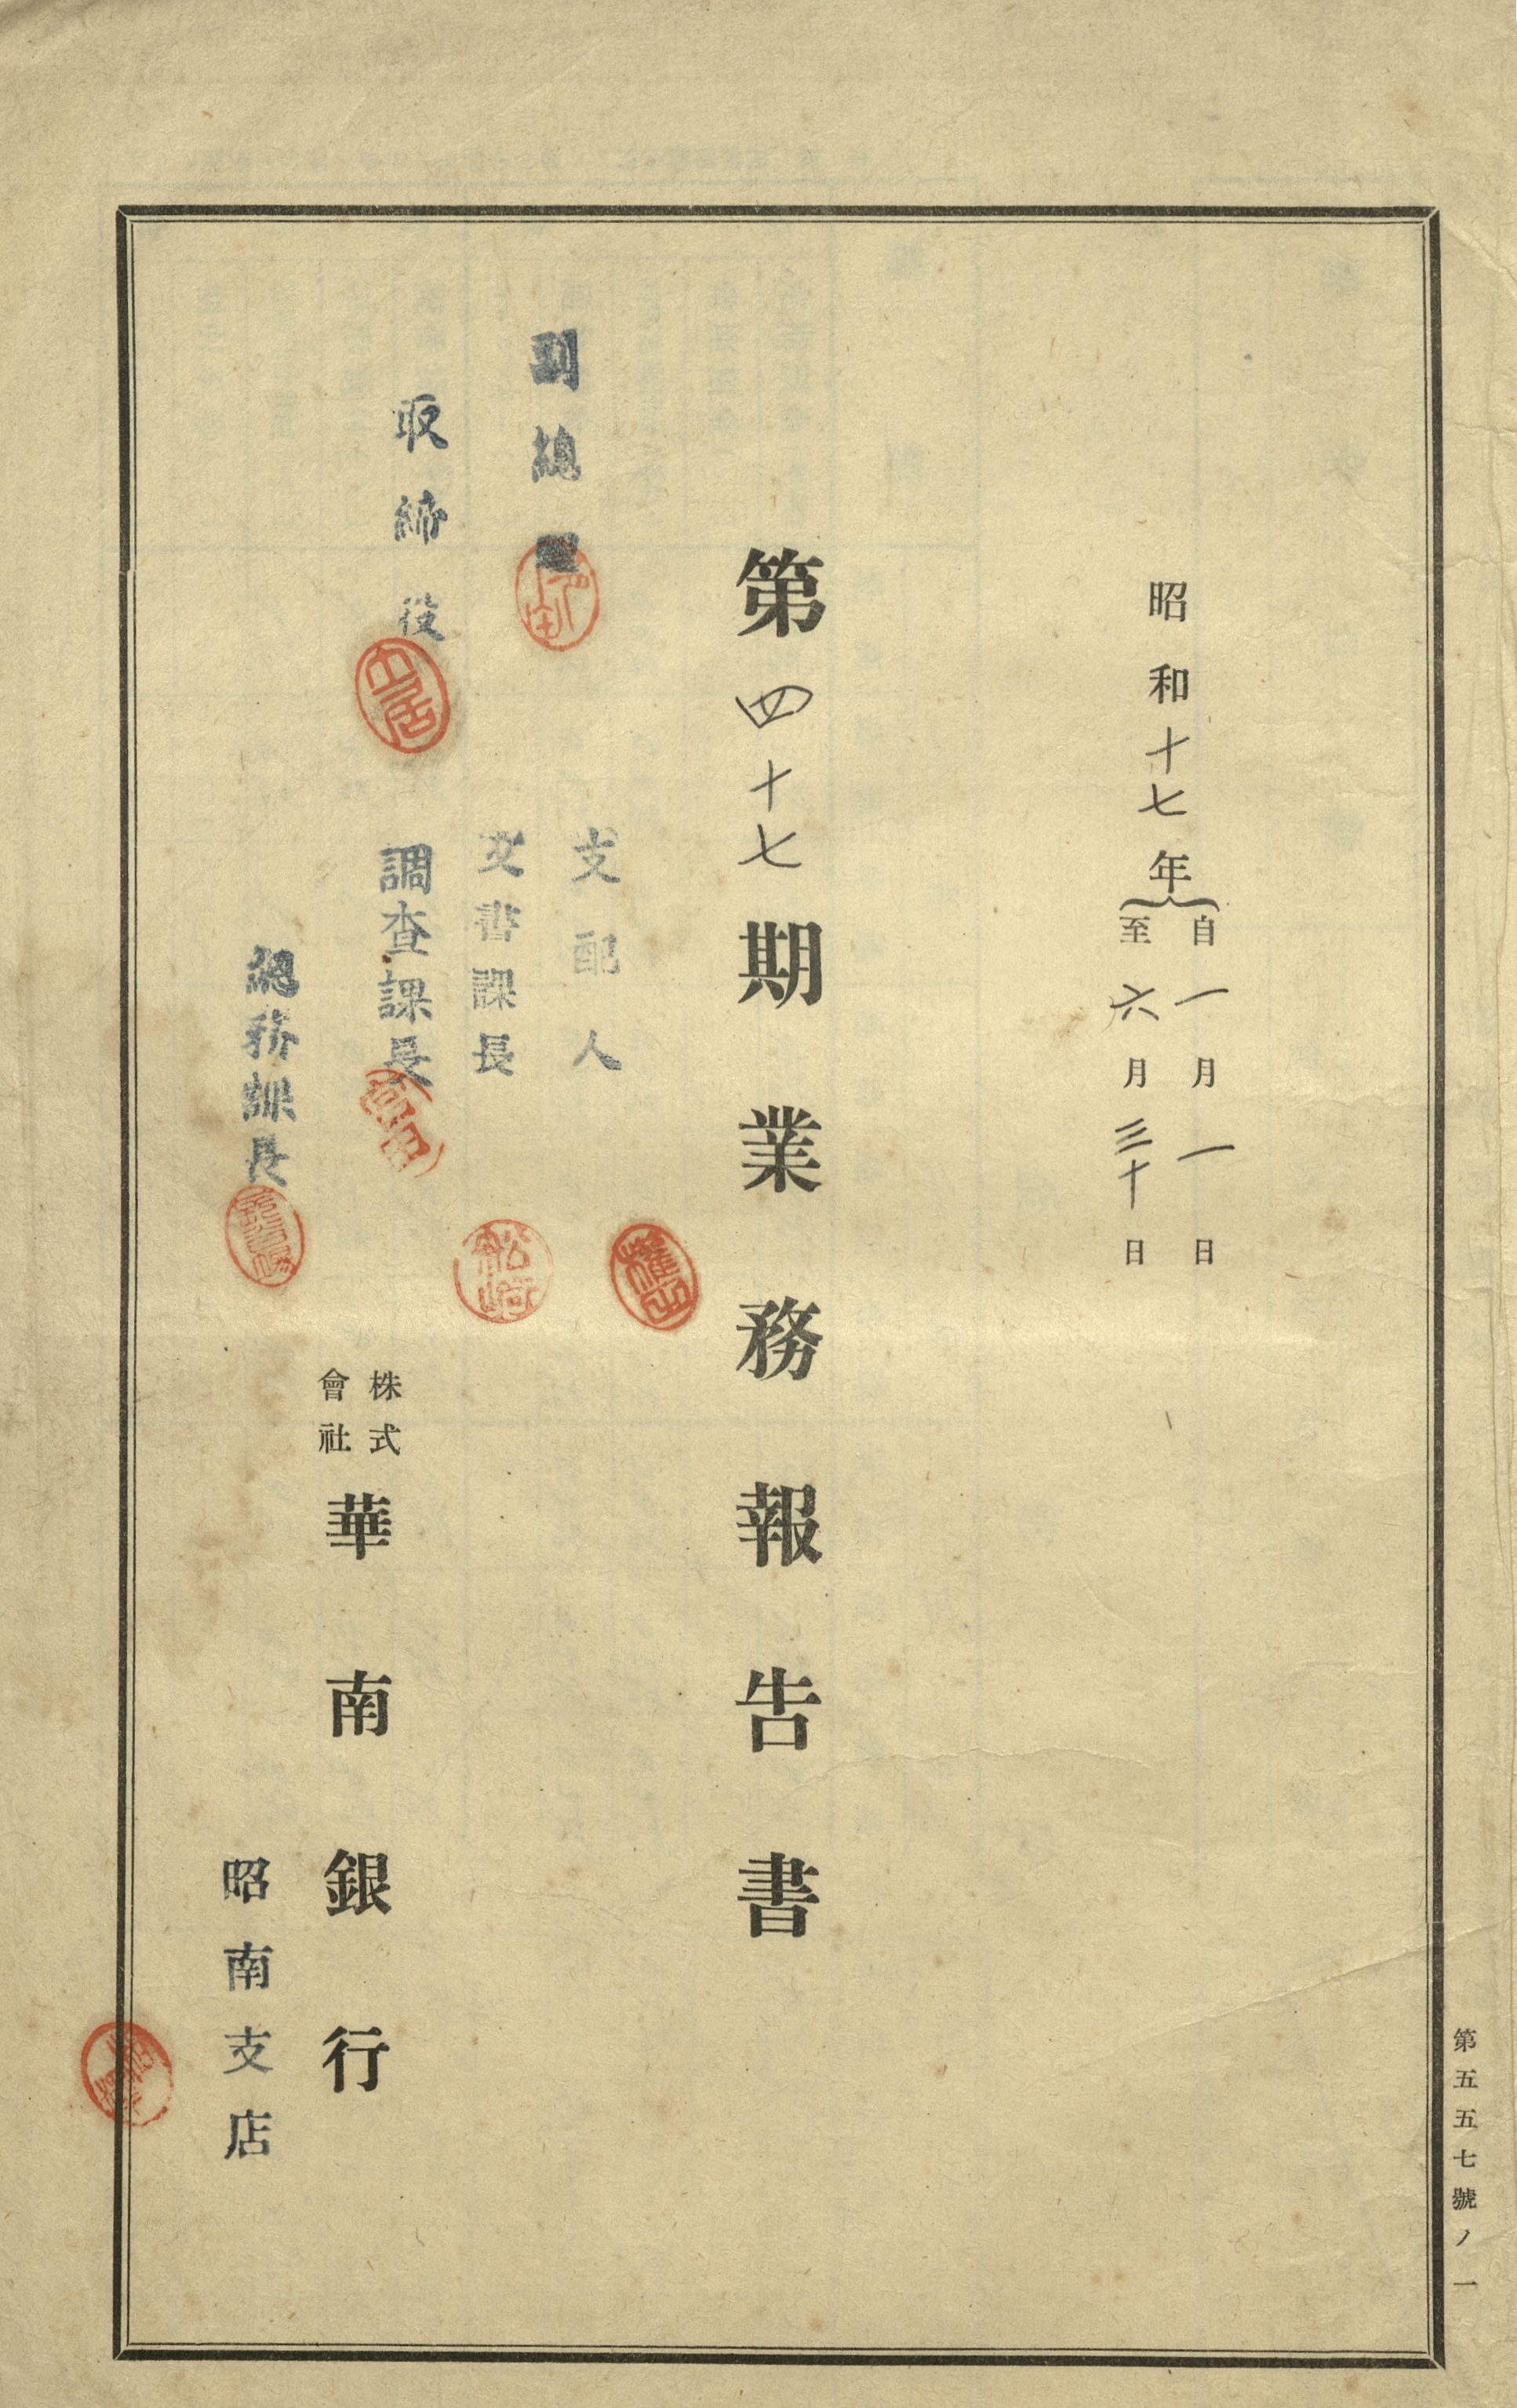 昭和十七年
自一月一日
至六月三十日
第四十七期業務報告書
副總理
支配人
文書課長
松崎
取締役
調査課長
總務課長
株式會社
華南銀行
昭南支店
第五五七號ノ一